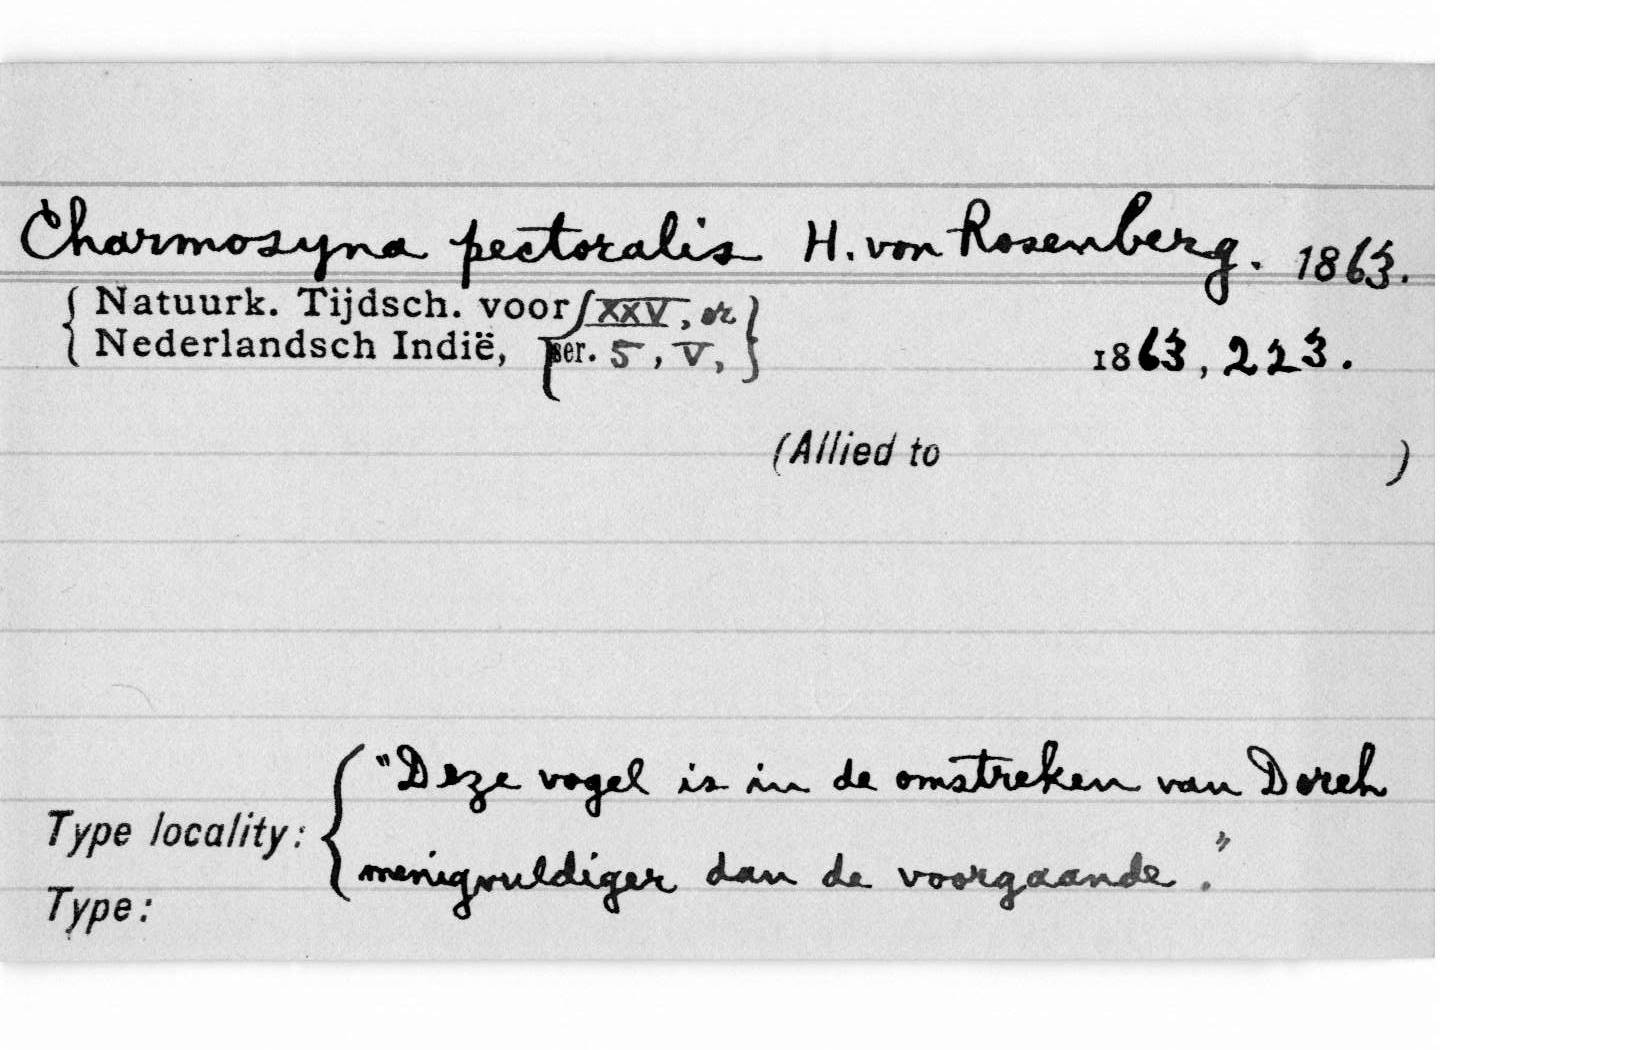 Charmosyna pectoralis H. von Rosenberg. 1863.
{ Natuurk. Tijdsch. voor { XXV, or }
{ Nederlandsch Indië, { ser. 5, V, } 1863, 223.
(Allied to )
"Deze vogel is in de omstreken van Doreh
Type locality: {
menigvuldiger dan de voorgaande."
Type: